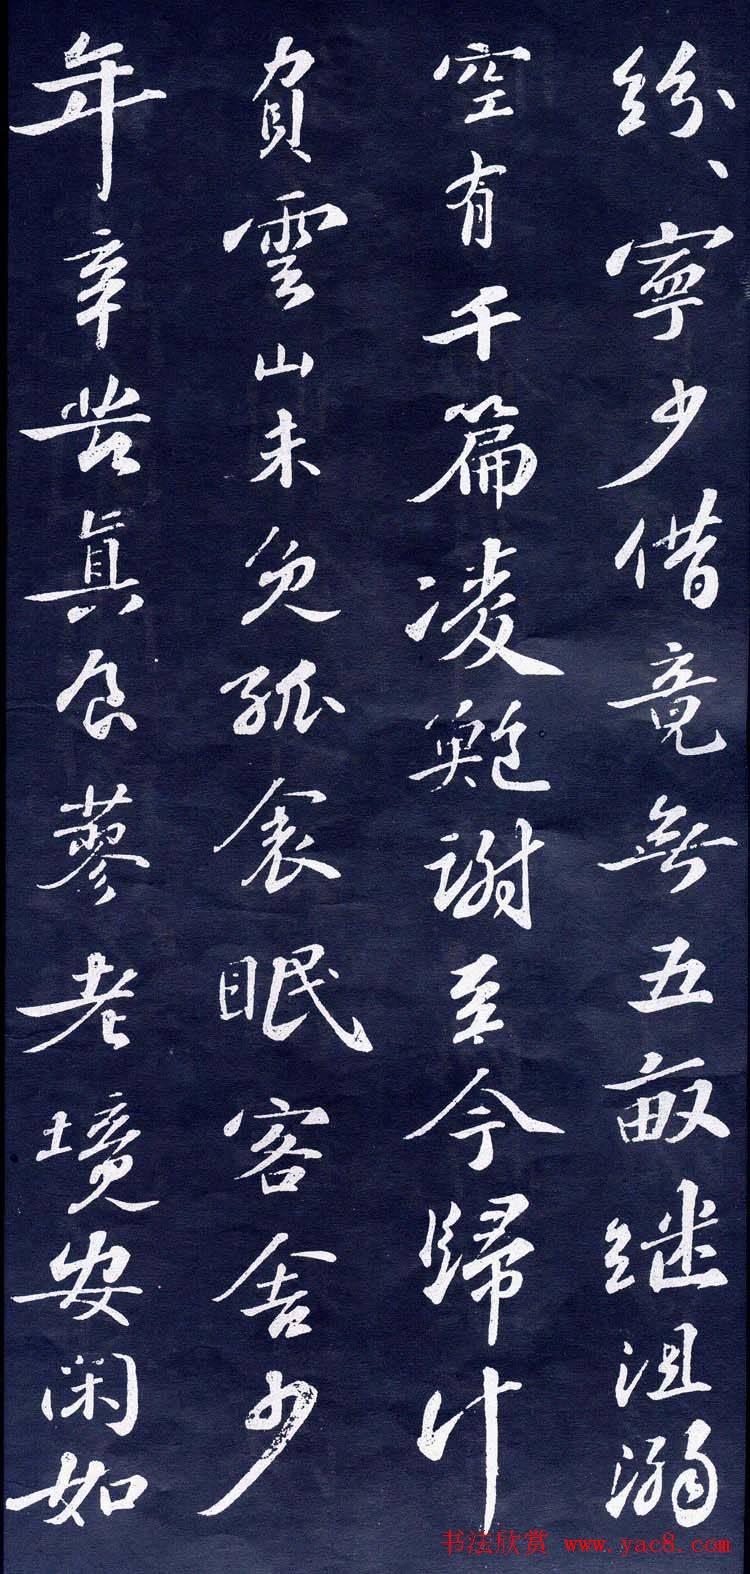 紛、寧少借竟無五畝継沮溺
空有千篇凌鮑謝至今歸計
負雲山未免孤衾眠客舍少
年辛苦真食蓼老境安闲如
书法欣赏 www.yac8.com